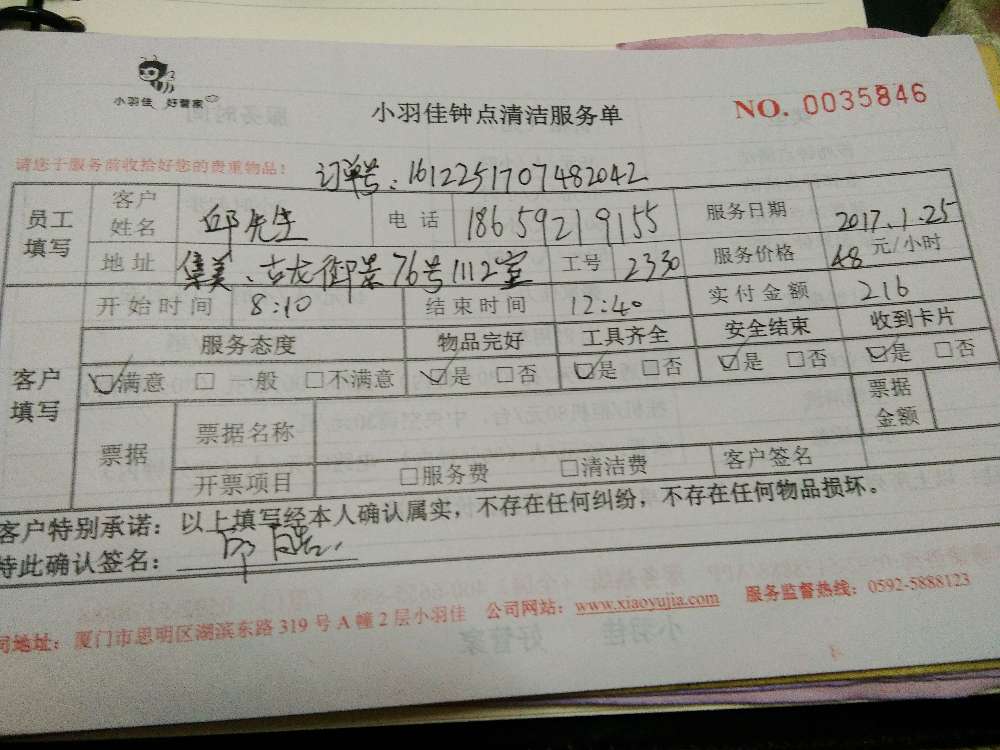 小羽佳 好管家
小羽佳钟点清洁服务单
NO. 0035846
请您于服务前收拾好您的贵重物品!
订单号:1612251707482042
员工填写 客户姓名 邱先生 电话 18659219155 服务日期 2017.1.25
地址 集美、古龙御景76号1112室 工号 2330 服务价格 48元/小时
开始时间 8:10 结束时间 12:40 实付金额 216
客户填写 服务态度 物品完好 工具齐全 安全结束 收到卡片
☑满意 □一般 □不满意 ☑是 □否 ☑是 □否 ☑是 □否 ☑是 □否
票据 票据名称 票据金额
开票项目 □服务费 □清洁费 客户签名
客户特别承诺:以上填写经本人确认属实,不存在任何纠纷,不存在任何物品损坏。
特此确认签名: 邱
司地址:厦门市思明区湖滨东路319号A幢2层小羽佳 公司网站:www.xiaoyujia.com 服务监督热线:0592-5888123